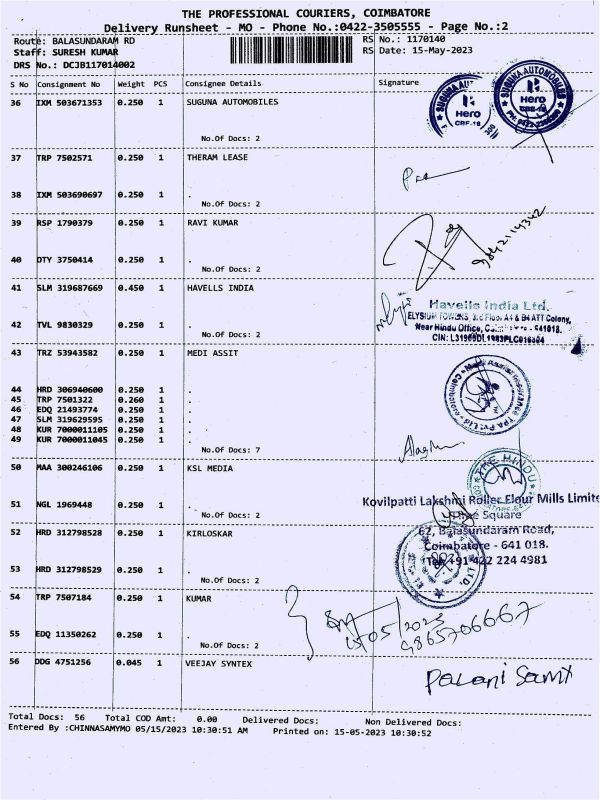 THE PROFESSIONAL COURIERS, COIMBATORE
Delivery Runsheet - MO - Phone No.:0422-3505555 - Page No.:2
Route: BALASUNDARAM RD RS No.: 1170140
Staff: SURESH KUMAR RS Date: 15-May-2023
DRS No.: DCJB117014002
S No Consignment No Weight PCS Consignee Details Signature
36 IXM 503671353 0.250 1 SUGUNA AUTOMOBILES
SUGUNA AUTOMOBILES
Hero
No.Of Docs: 2
37 TRP 7502571 0.250 1 THERAM LEASE
38 IXM 503690697 0.250 1 .
No.Of Docs: 2
39 RSP 1790379 0.250 1 RAVI KUMAR
9842114342
40 DTY 3750414 0.250 1 .
No.Of Docs: 2
41 SLM 319687669 0.450 1 HAVELLS INDIA
Havells India Ltd.
Near Hindu Office, 641018.
42 TVL 9830329 0.250 1 .
No.Of Docs: 2
43 TRZ 53943582 0.250 1 MEDI ASSIT
44 HRD 306940600 0.250 1 .
45 TRP 7501322 0.260 1 .
46 EDQ 21493774 0.250 1 .
47 SLM 319629595 0.250 1 .
48 KUR 7000011105 0.250 1 .
49 KUR 7000011045 0.250 1 .
No.Of Docs: 7
50 MAA 300246106 0.250 1 KSL MEDIA
THE HINDU
51 NGL 1969448 0.250 1 .
No.Of Docs: 2
Kovilpatti Lakshmi Roller Flour Mills Limite
Square
52 HRD 312798528 0.250 1 KIRLOSKAR
62, Balasundaram Road,
Coimbatore - 641 018.
Tel +91 422 224 4981
53 HRD 312798529 0.250 1 .
No.Of Docs: 2
54 TRP 7507184 0.250 1 KUMAR
15/05/2023
9865706667
55 EDQ 11350262 0.250 1 .
No.Of Docs: 2
56 DDG 4751256 0.045 1 VEEJAY SYNTEX
Palani Samy
Total Docs: 56 Total COD Amt: 0.00 Delivered Docs: Non Delivered Docs:
Entered By :CHINNASAMYMO 05/15/2023 10:30:51 AM Printed on: 15-05-2023 10:30:52